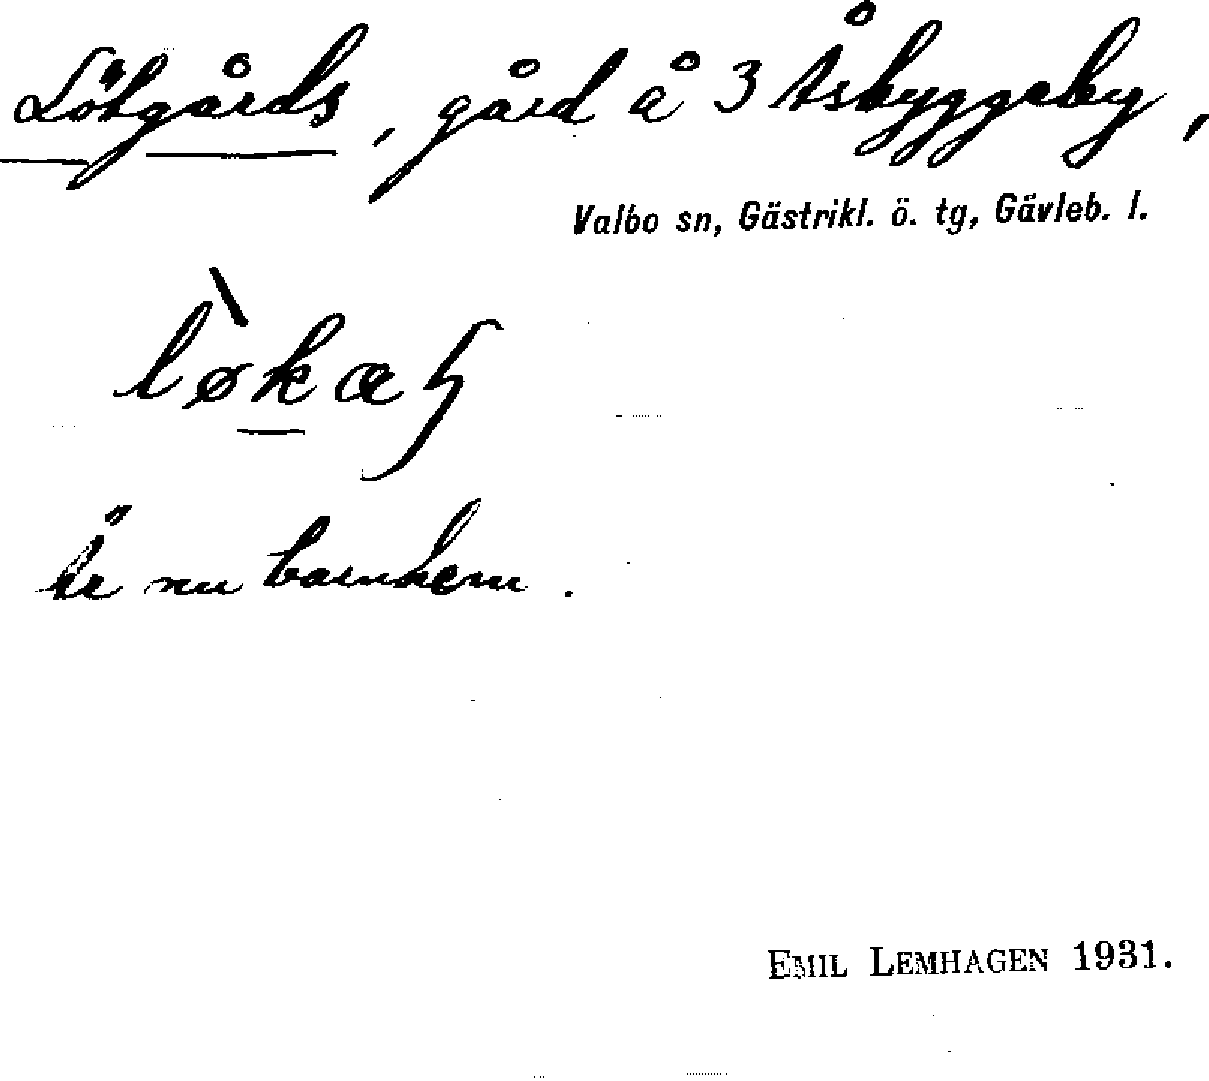 Lötgårds, gård å 3 Åsbyggeby,
Valbo sn, Gästrikl. ö. tg, Gävleb. l.
Är nu barnhem.
EMIL LEMHAGEN 1931.